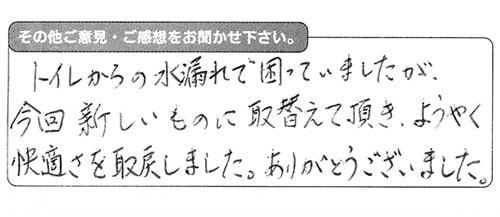 その他ご意見・ご感想をお聞かせ下さい。
トイレからの水漏れで困っていましたが、
今回新しいものに取替えて頂き、ようやく
快適さを取戻しました。ありがとうございました。